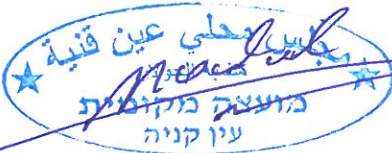 مجلس محلي عين قنية
מועצה מקומית
עין קניה